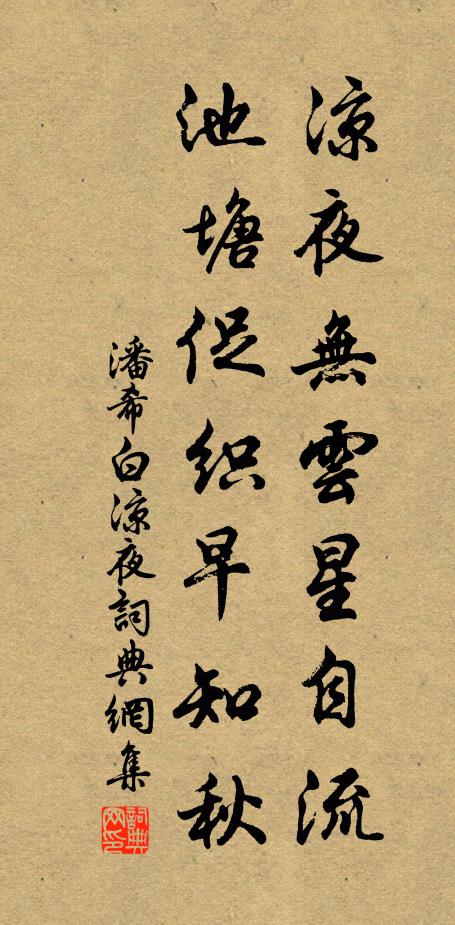 凉夜無雲星自流
池塘促织早知秋
潘希白凉夜詞典網集
詞典网印